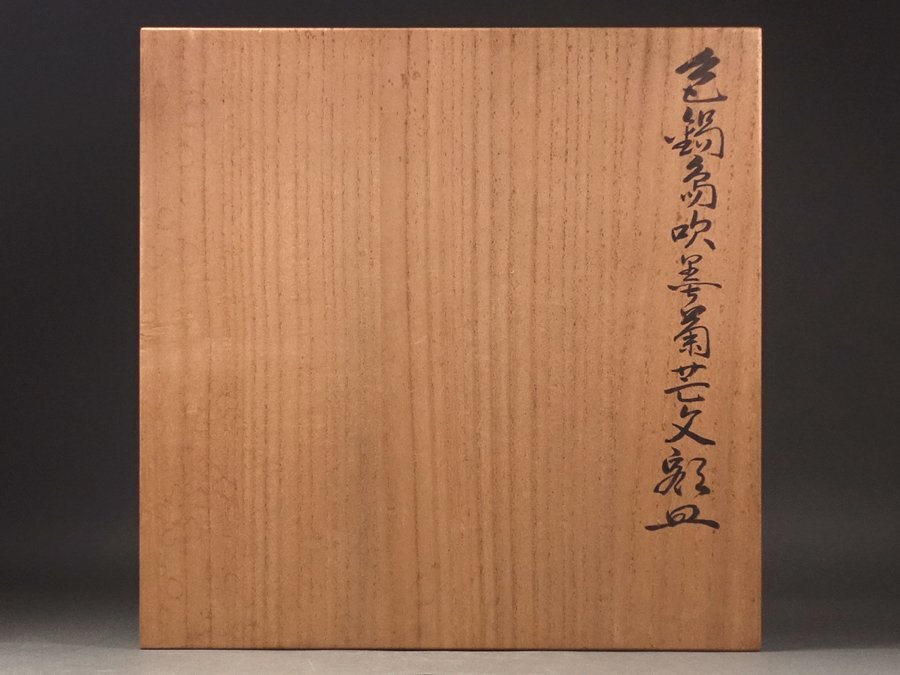 色鍋島吹墨菊芒文額皿